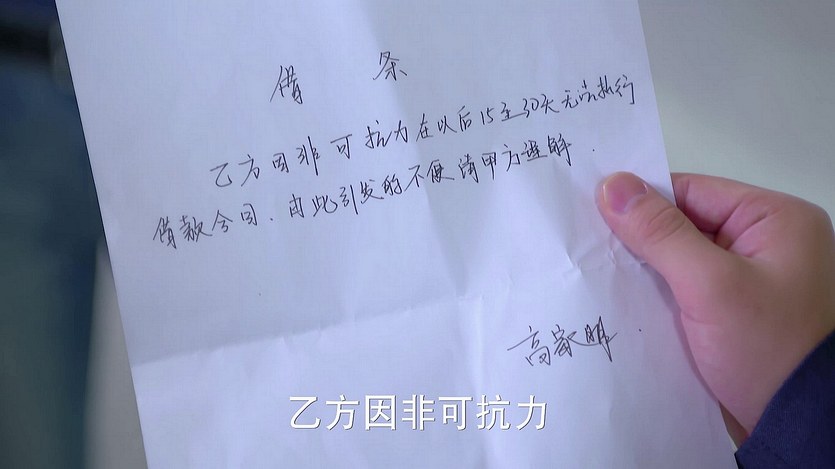 借 条
乙方因非可抗力在以后15至30天无法执行
借款合同.由此引发的不便请甲方谅解.
高家明.
乙方因非可抗力